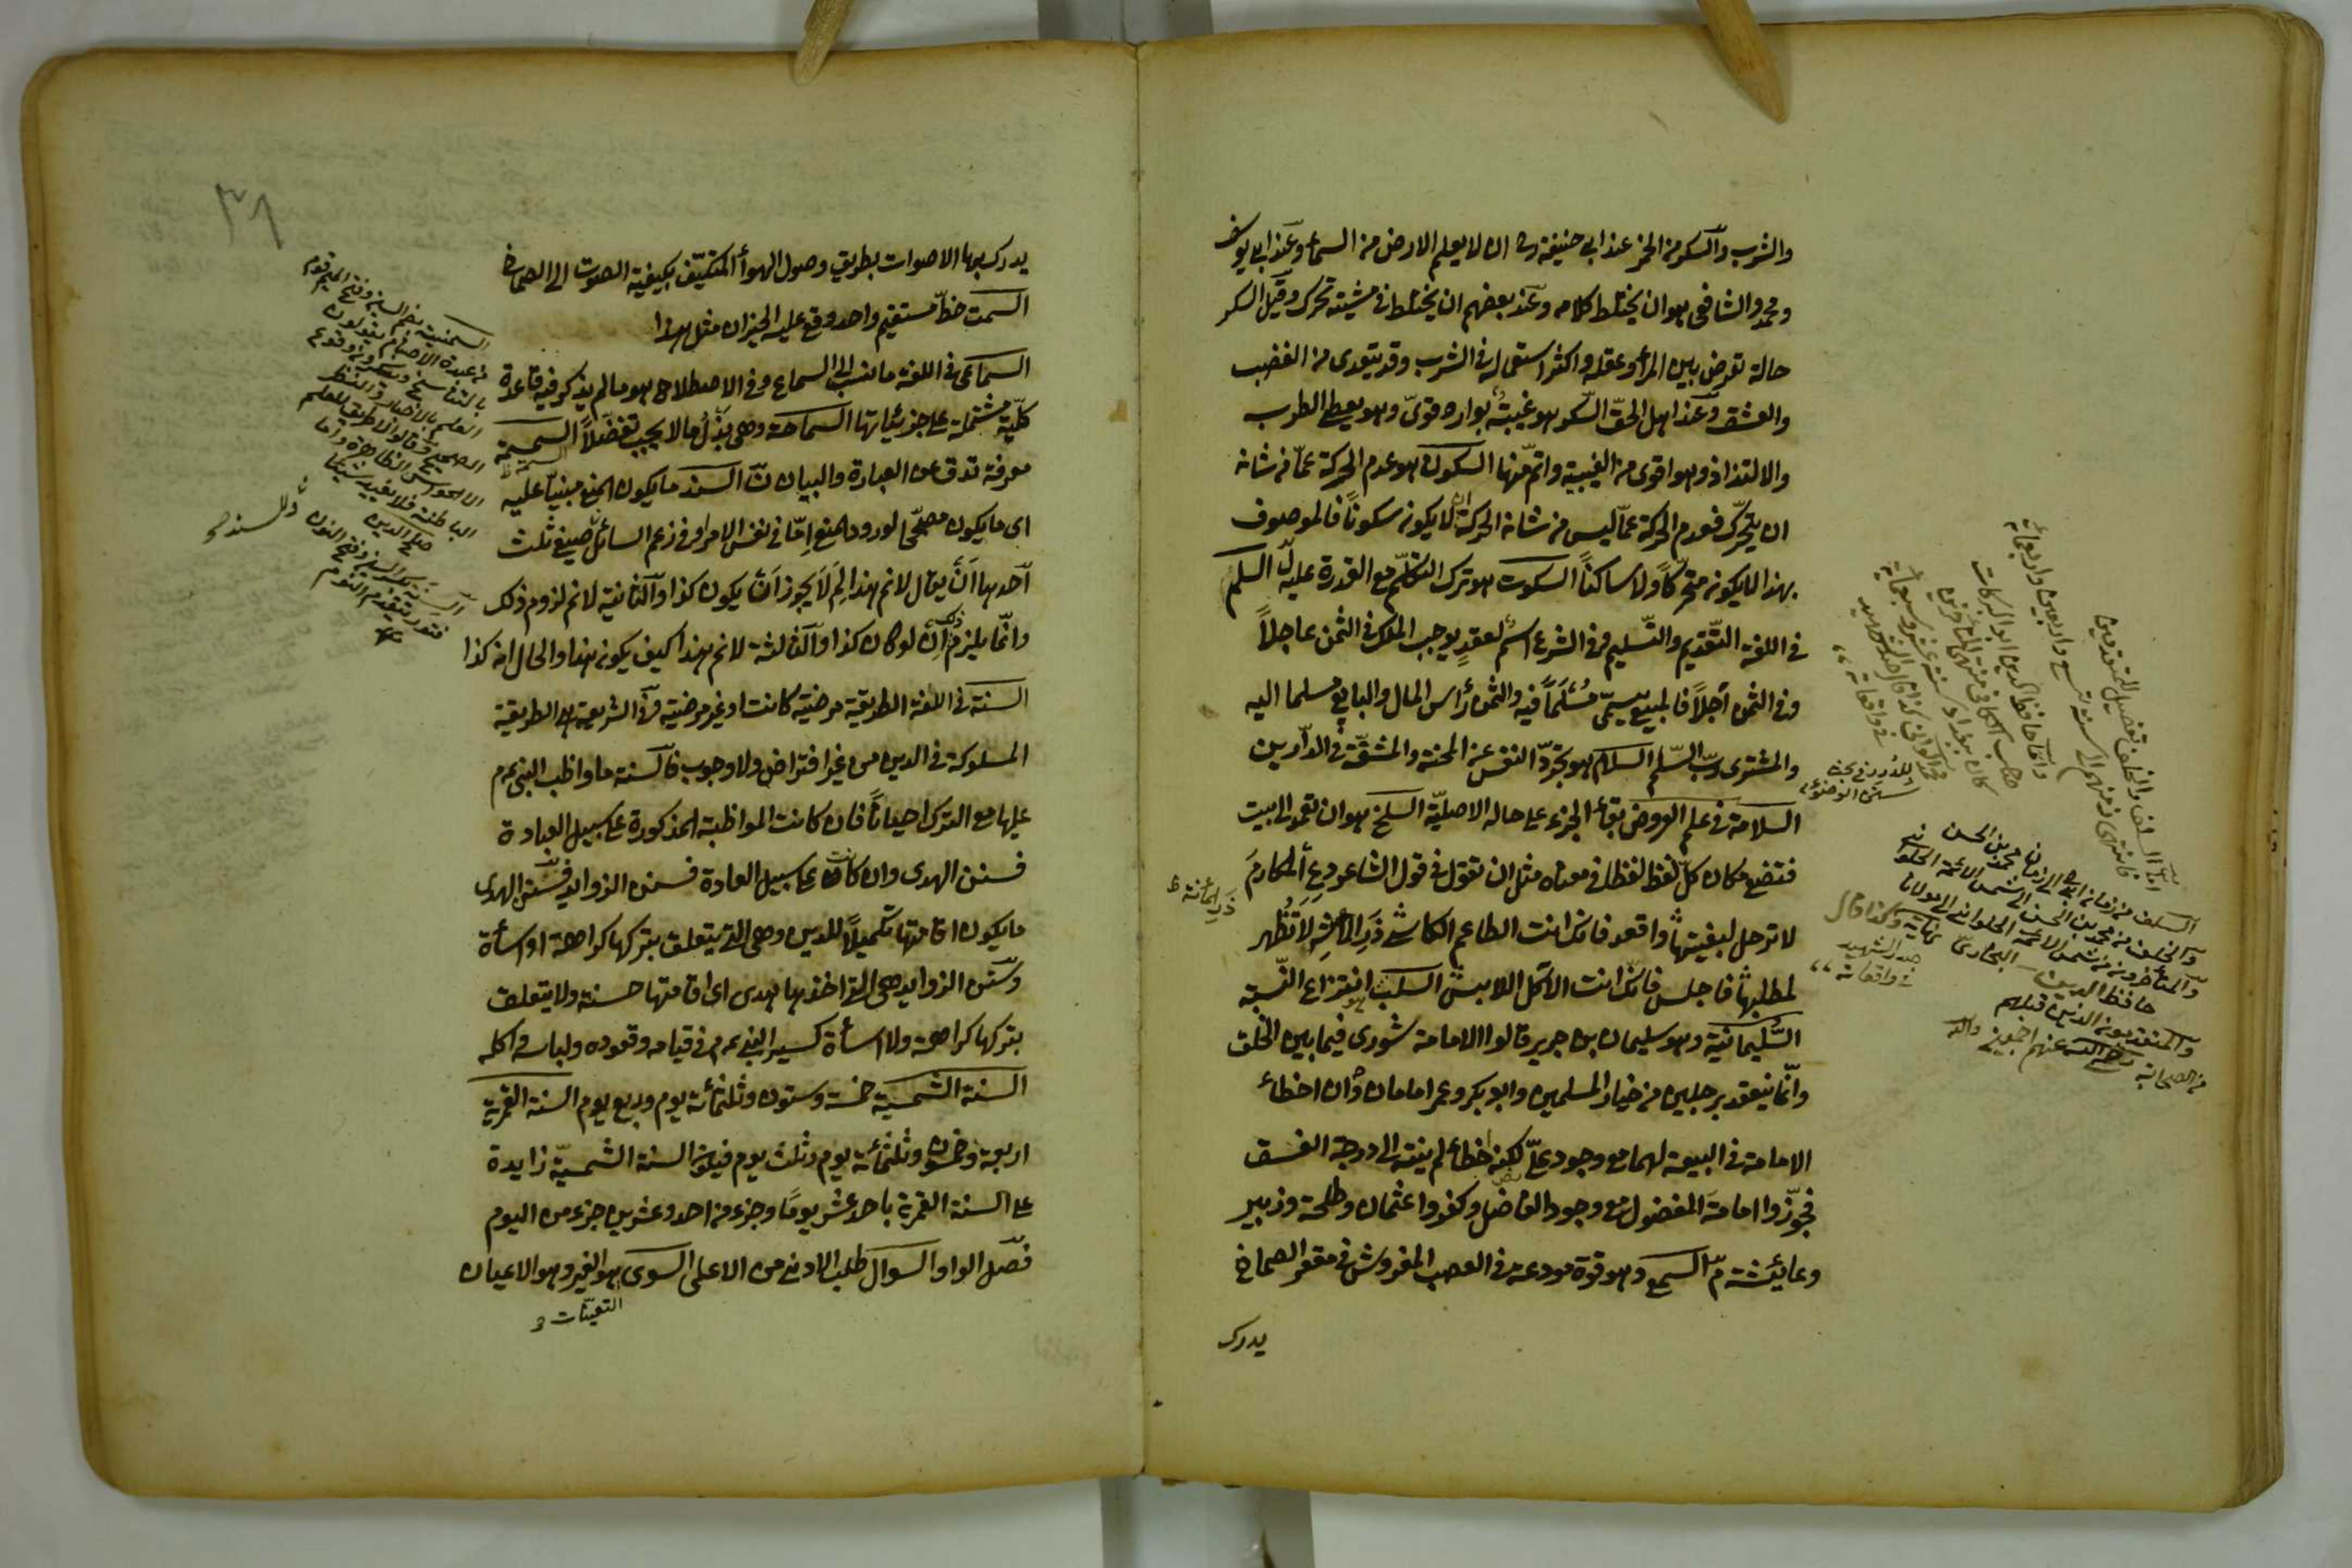 والشرب والسكر من الخمر عند ابي حنيفة رح ان لا يعلم الارض من السماء وعند ابي يوسف
ومحمد والشافعي هو ان يختلط كلامه وعند بعضهم ان يختلط في مشيته تحرك وقيل السكر
حالة تعرض بين المرأ وعقله واكثر استعماله في الشرب وقد يتعدى من الغضب
والعشق وعند اهل الحق السكر هو غيبة بوارد قوى وهو يعطى الطرب
والالتذاذ وهو اقوى من الغيبة واتم منها السكون هو عدم الحركة عما من شانه
ان يتحرك فعدم الحركة عما ليس من شانه الحركة لا يكون سكونا فالموصوف
بهذا لا يكون متحركا ولا ساكنا السكوت هو ترك التكلم مع القدرة عليه السلم
في اللغة التقديم والتسليم وفي الشرع اسم لعقد يوجب الملك في الثمن عاجلا
وفي الثمن آجلا فالمبيع يسمى مسلما فيه والثمن رأس المال والبايع مسلما اليه
والمشترى رب السلم السلام هو تجرد النفس عن المحنة والمشقة في الدارين
السلامة في علم العروض بقاء الجزء على حاله الاصلية السلخ هو ان تعمد الى بيت
فتضع مكان كل لفظ لفظا في معناه مثل ان تقول في قول الشاعر دع المكارم
لا ترحل لبغيتها واقعد فانك انت الطاعم الكاسي ذر المآثر لا تظهر
لمطلبها فاجلس فانك انت الآكل اللابس السلب هو انتزاع النسبة
السليمانية وهو سليمان بن جرير قالوا الامامة شورى فيما بين الخلق
وانما ينعقد برجلين من خيار المسلمين وابو بكر وعمر امامان وان اخطاء
الامامة في البيعة لهما مع وجود على لكنه خطاء لم ينته الى درجة الفسق
فجوزوا امامة المفضول مع وجود الفاضل وكفروا عثمان وطلحة وزبير
وعايشة رض السمع وهو قوة مودعة في العصب المفروش في مقعر الصماخ
يدرك
السلف من زمان ابي الى زمان محمد بن الحسن
والخلف من محمد بن الحسن الى شمس الائمة الحلوانى
والمتأخرون من شمس الائمة الحلوانى الى مولانا
حافظ الدين البخارى
والمتقدمون الذين قبلهم
من الصحابة رضي الله عنهم اجمعين
٣٨
يدرك بها الاصوات بطريق وصول الهواء المتكيف بكيفية الصوت الى الصماخ
السمت خط مستقيم واحد وقع عليه الحيزان مثل هذا
السماعى في اللغة ما نسب الى السماع وفي الاصطلاح هو ما لم يذكر فيه قاعدة
كلية مشتملة على جزئياتها السماحة وهي بذل ما لا يجب تفضلا السمسمة
معرفة تدق عن العبارة والبيان السند ما يكون المنع مبنيا عليه
اى ما يكون مصححا لورود المنع اما في نفس الامر او في زعم السائل صيغ ثلث
احدها ان يقال لا نم هذا لم لا يجوز ان يكون كذا والثانية لا نم لزوم ذلك
وانما يلزم ذلك ان لو كان كذا والثالثة لا نم هذا كيف يكون هذا والحال انه كذا
السنة في اللغة الطريقة مرضية كانت او غير مرضية وفي الشريعة هي الطريقة
المسلوكة في الدين من غير افتراض ولا وجوب فالسنة ما واظب النبي عم
عليها مع الترك احيانا فان كانت المواظبة المذكورة على سبيل العبادة
فسنن الهدى وان كانت على سبيل العادة فسنن الزوايد فسنن الهدى
ما يكون اقامتها تكميلا للدين وهي التي يتعلق بتركها كراهة او اساءة
وسنن الزوايد هي التي اخذها هدى اى اقامتها حسنة ولا يتعلق
بتركها كراهة ولا اساءة كسير النبي عم في قيامه وقعوده ولباسه واكله
السنة الشمسية خمسة وستون وثلثمائة يوم وربع يوم السنة القمرية
اربعة وخمسون وثلثمائة يوم وثلث يوم فيكون السنة الشمسية زايدة
على السنة القمرية باحد عشر يوما وجزء من احد وعشرين جزء من اليوم
فصل الواو السوال طلب الادنى من الاعلى السوى هو الغير وهو الاعيان
السمنية بضم السين وفتح الميم قوم
من عبدة الاصنام يقولون
بالتناسخ وينكرون وقوع
العلم بالاخبار والنظر
الصحيح وقالوا لا طريق للعلم
الا الحواس الظاهرة واما
الباطنة فلا تفيد شيئا
صلاح الدين
السنة بكسر السين وفتح النون
فتور يتقدم النوم